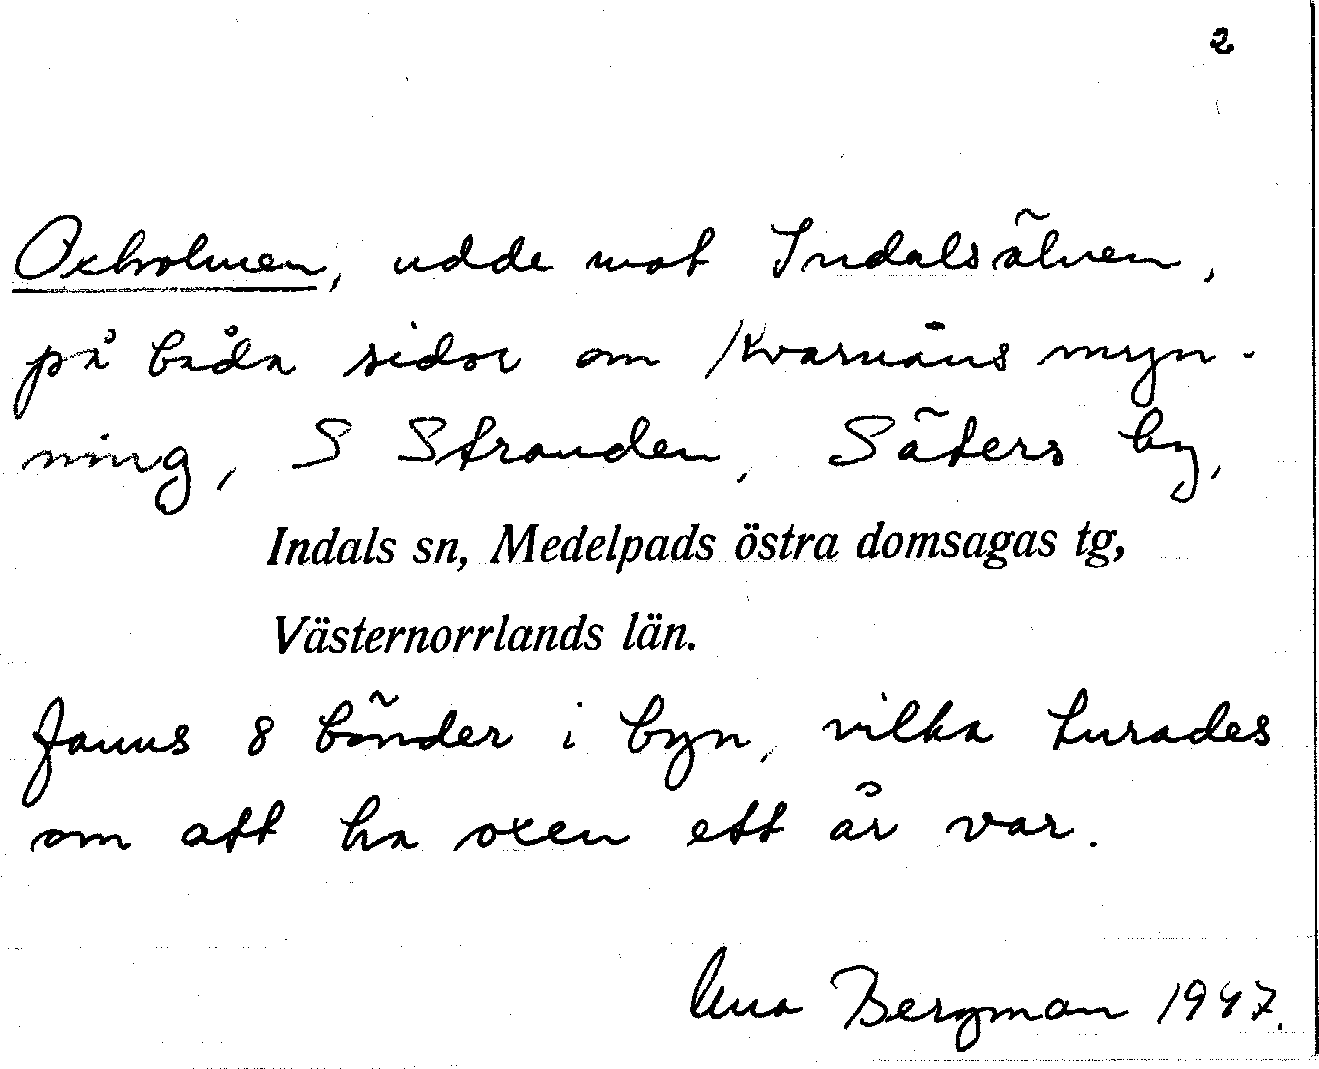 2
Oxholmen, udde mot Indalsälven,
på båda sidor om Kvarnåns myn-
ning, S Stranden, Säters by,
Indals sn, Medelpads östra domsagas tg,
Västernorrlands län.
fanns 8 bönder i byn, vilka turades
om att ha oxen ett år var.
Bergman 1947.